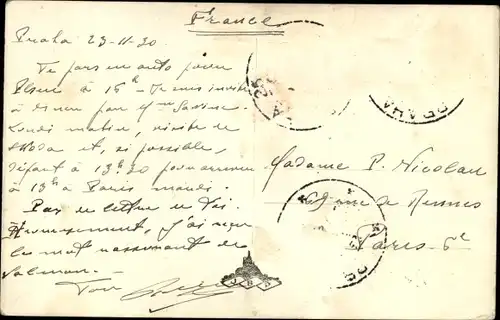 France
Praha 23-11-30
Je pars en auto pour
à 16h - Je suis invité
à diner par Mme
Lundi matin, visite de
Skoda et, si possible,
départ à 13h30 pour arriver
à 13h à Paris mardi.
Pas de lettre de Toi.
Heureusement, j'ai reçu
le mot rassurant de
Ton
Madame P. Nicolau
rue de Rennes
Paris 6e
PRAHA
J B 3